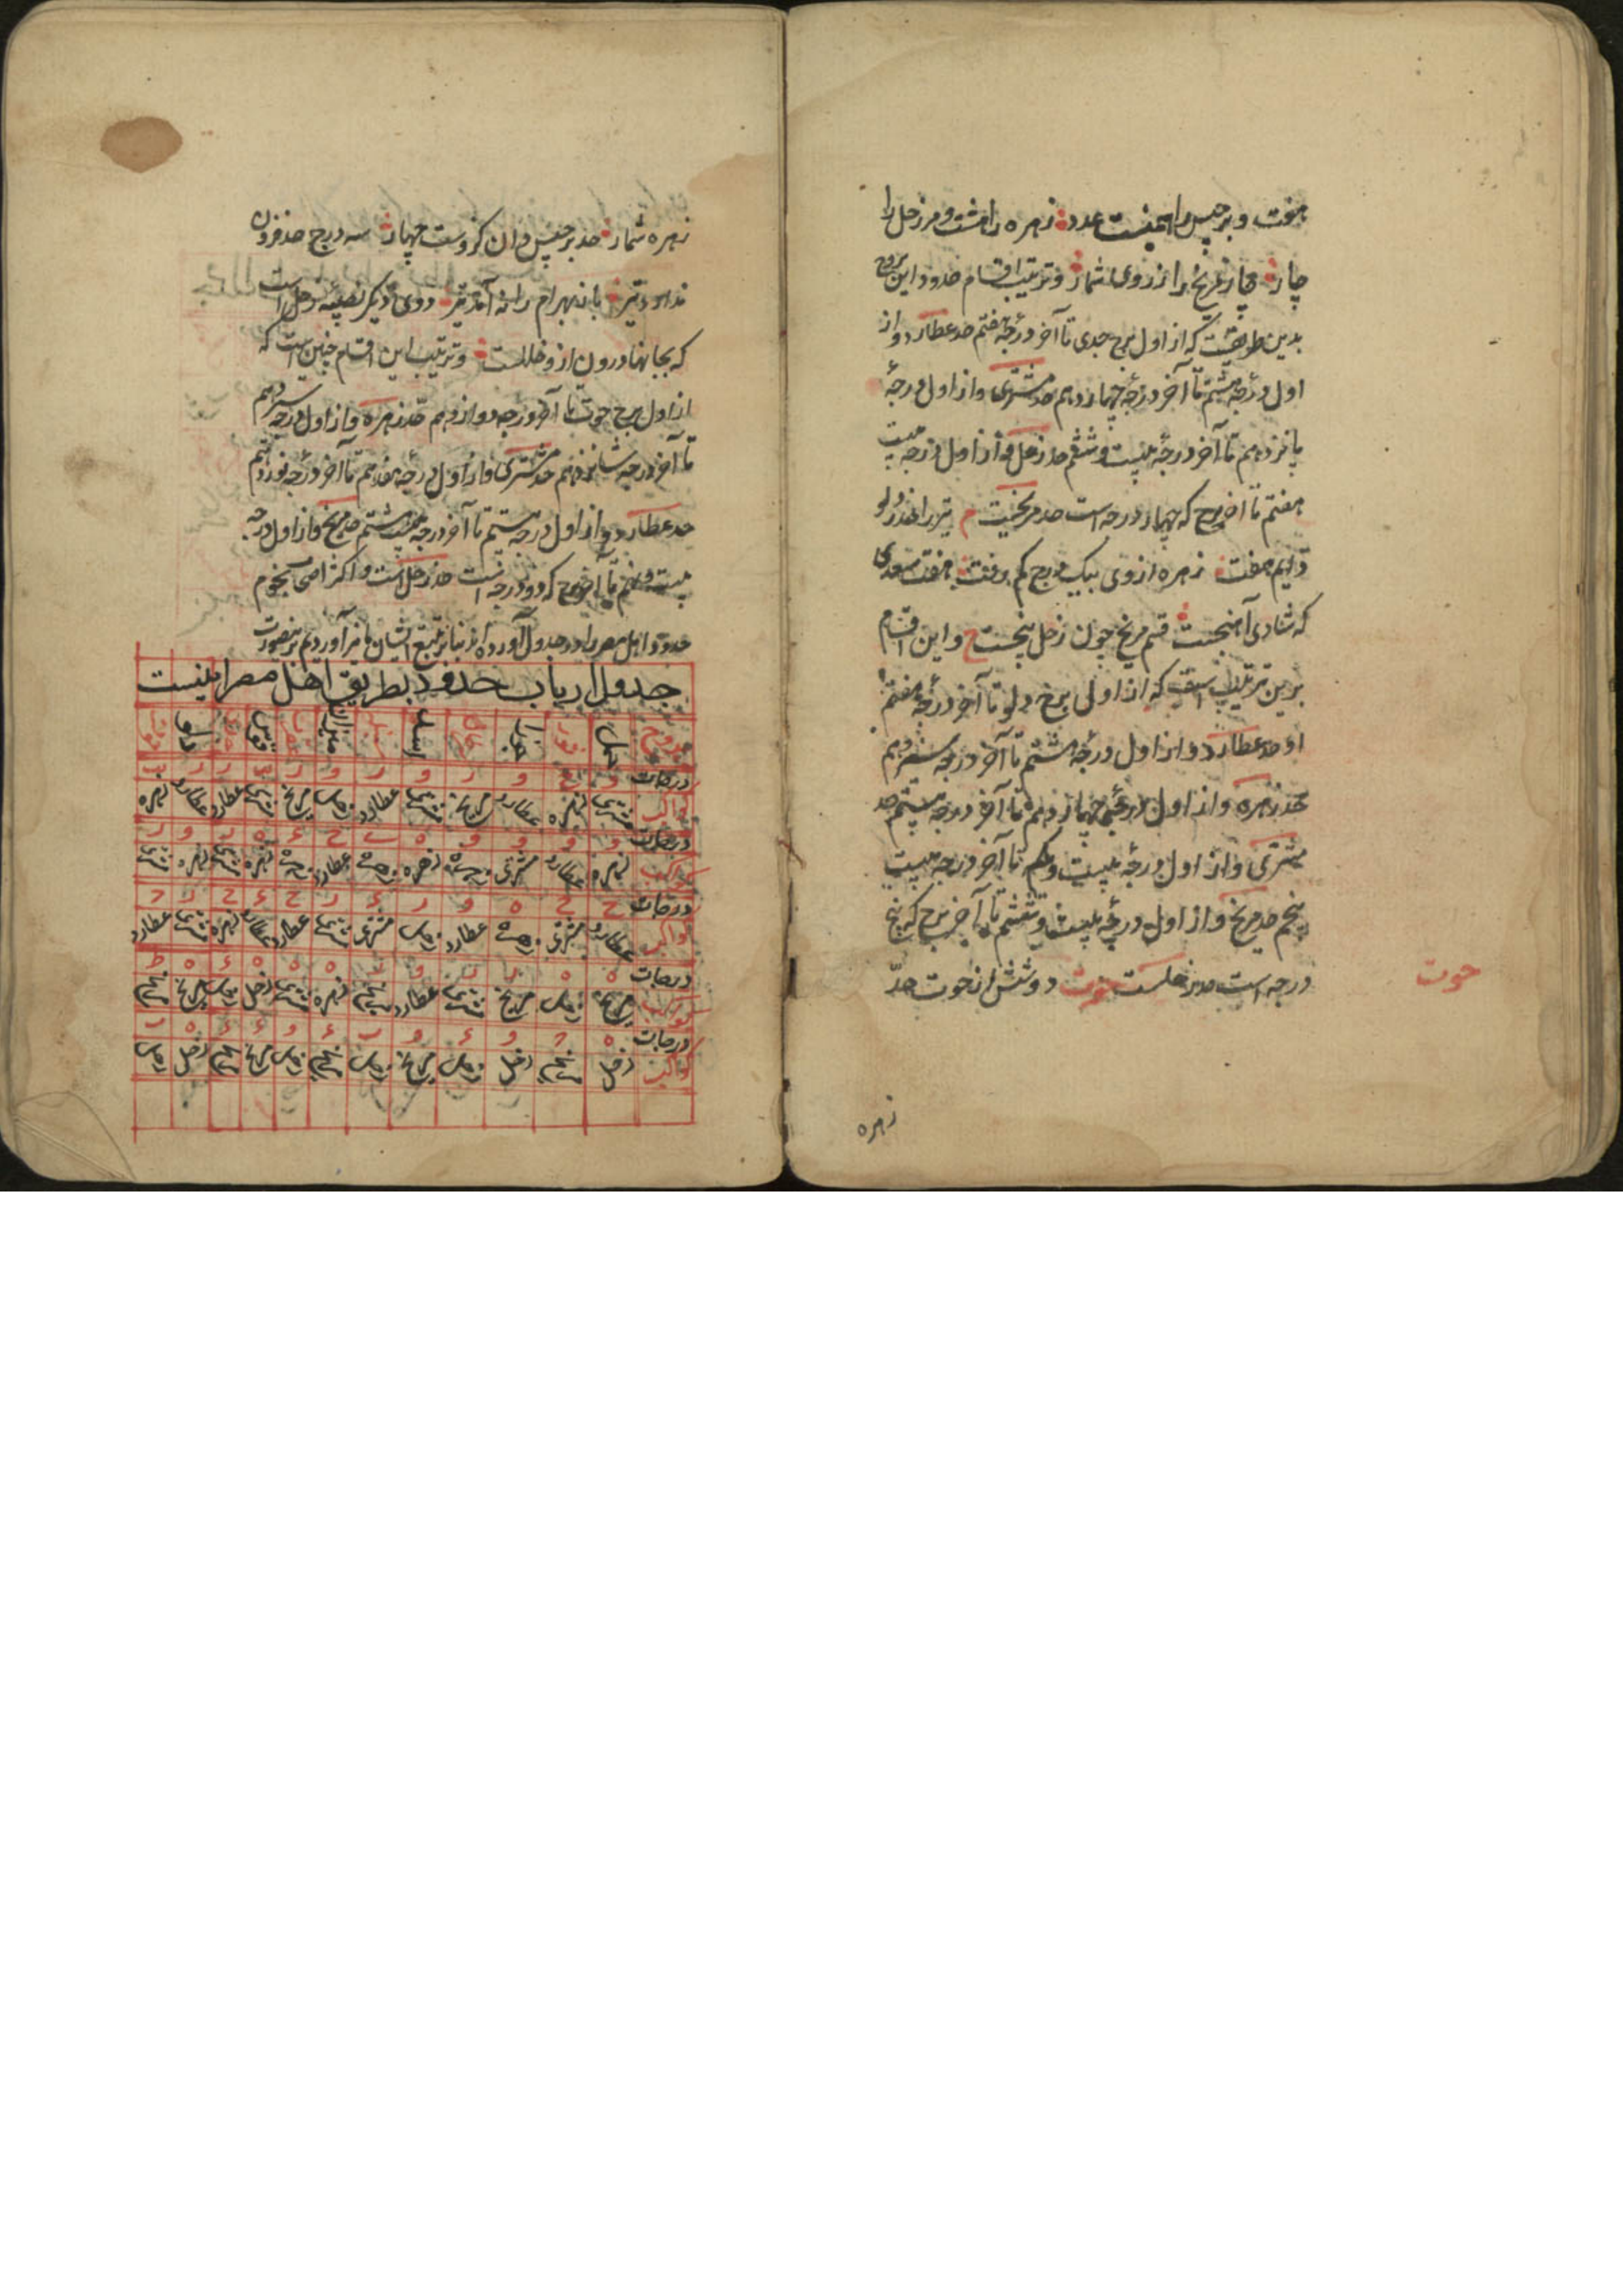 هفت و برجیس را همینست عدد زهره را هشت و مر زحل را
چار چار مریخ را ز روی شمار و ترتیب اقسام حدود این برج
بدین طریقست که از اول برج جدی تا آخر درجه هفتم حد عطارد و از
اول درجه هشتم تا آخر درجه چهاردهم حد مشتری و از اول درجه
پانزدهم تا آخر درجه بیست و ششم حد زحل و از اول درجه بیست
هفتم تا آخر برج که چهار درجه است حد مریخست تیر را حد ز دلو
دایم هفت زهره از وی بیک درج کم رفت هفت سعدی
که شادی آهنجست قسم مریخ چون زحل پنجست و این اقسام
برین ترتیب است که از اول برج دلو تا آخر درجه هفتم
او حد عطارد و از اول درجه هشتم تا آخر درجه سیزدهم
حد زهره و از اول درجه چهاردهم تا آخر درجه بیستم حد
مشتری و از اول درجه بیست و یکم تا آخر درجه بیست
پنجم حد مریخ و از اول درجه بیست و ششم تا آخر برج که پنج
درجه است حد زحلست حوت دو شش از حوت حدّ
حوت
زهره
زهره شمار حد برجیس دان کزوست چهار سه درج حد فزون
ندارد تیر باز بهرام را نه آمد تیر دوی دیگر نصیبه زحل است
که بجانها درون ازو خللست و ترتیب این اقسام چنین است که
از اول برج حوت تا آخر درجه دوازدهم حد زهره و از اول درجه سیزدهم
تا آخر درجه شانزدهم حد مشتری و از اول درجه هفدهم تا آخر درجه نوزدهم
حد عطارد و از اول درجه بیستم تا آخر درجه بیست هشتم حد مریخ و از اول درجه
بیست و نهم تا آخر برج که دو درجه است حد زحل است و اکثر اصحاب نجوم
حدود اهل مصر را در جدول آورده اند بنابر تتبع ایشان ما نیز آوردیم برینصورت
جدول ارباب حدود بطریق اهل مصر اینست
بروج حمل ثور جوزا سرطان اسد سنبله میزان عقرب قوس جدی دلو حوت
درجات
کواکب مشتری زهره عطارد مریخ مشتری عطارد زحل مریخ مشتری عطارد عطارد زهره
درجات
کواکب زهره عطارد مشتری زهره زهره زهره عطارد زهره زهره مشتری زهره مشتری
درجات
کواکب عطارد مشتری زهره عطارد زحل مشتری مشتری عطارد عطارد زهره مشتری عطارد
درجات
کواکب مریخ زحل مریخ مشتری عطارد مریخ زهره مشتری زحل زحل مریخ مریخ
درجات
کواکب زحل مریخ زحل زحل مریخ زحل مریخ زحل مریخ مریخ زحل زحل